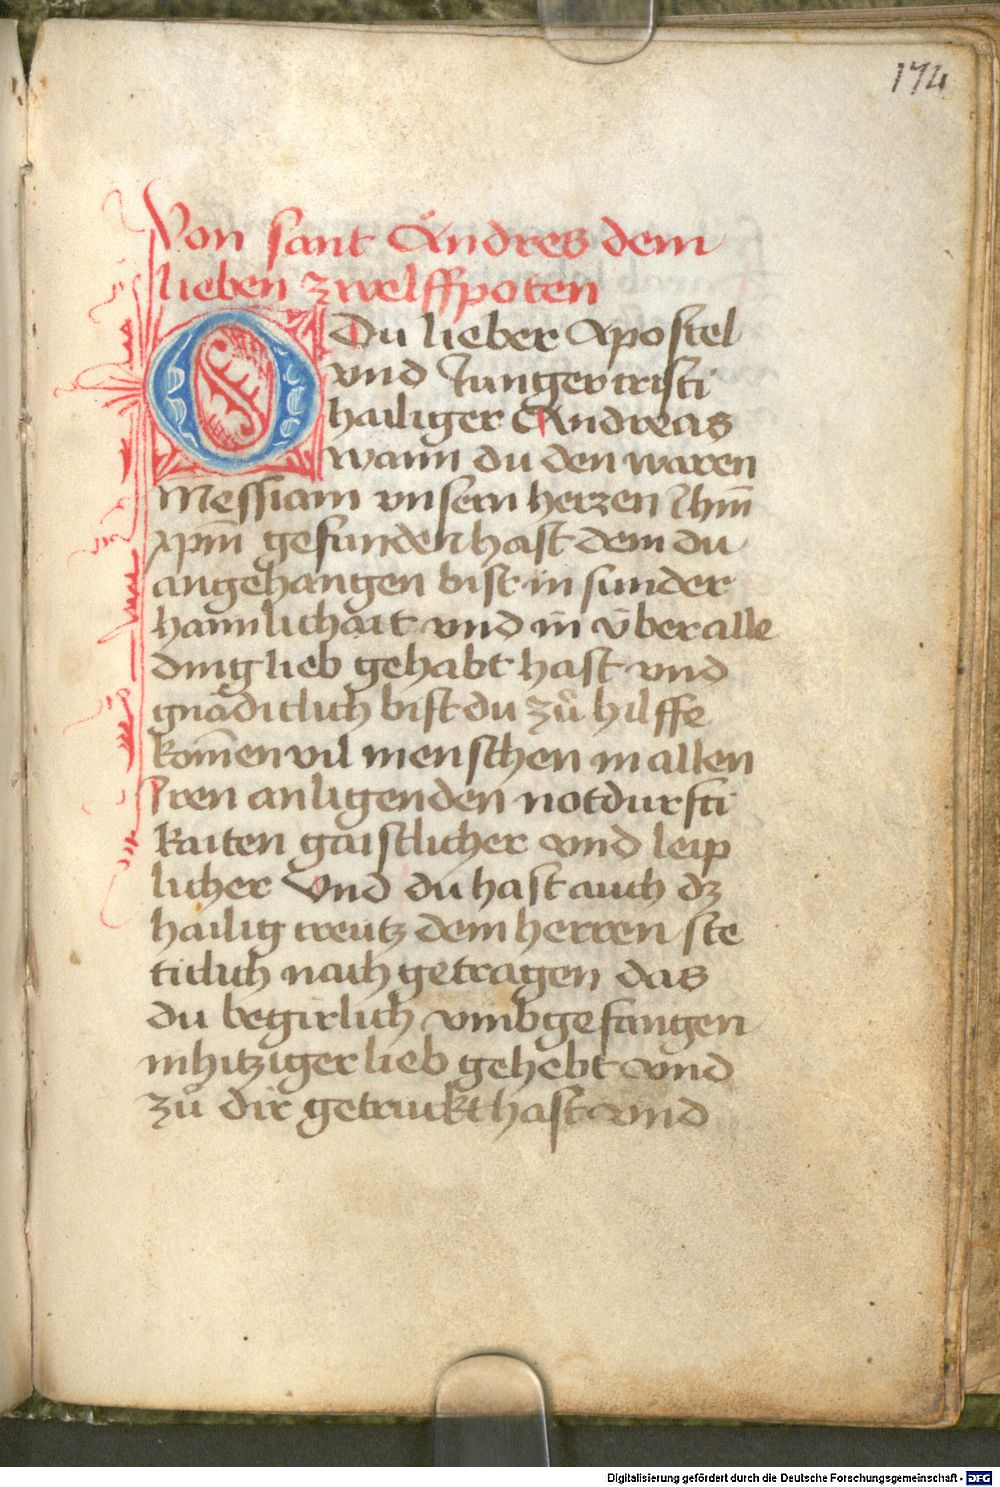 174
Von sant Andres dem
lieben zwelffpoten
O Du lieber Apostel
vnd Junger cristi
hailiger Andreas
wann du den waren
Messiam vnsern herzen Jhm̄
xpm̄ gefunden hast dem du
angehangen bist in sunder
haimlichait vnd in v̈ber alle
ding lieb gehabt hast vnd
gnädiclich bist du zů hilffe
kom̄en vil menschen in allen
Iren anligenden notdurfti
kaiten gaistlicher vnd leip
licher Vnd du hast auch dz
hailig creütz dem herren ste
ticlich nach getragen das
du begirlich vmbgefangen
in hitziger lieb gehebt vnd
zů dir getruckt hast vnd
Digitalisierung gefördert durch die Deutsche Forschungsgemeinschaft - DFG